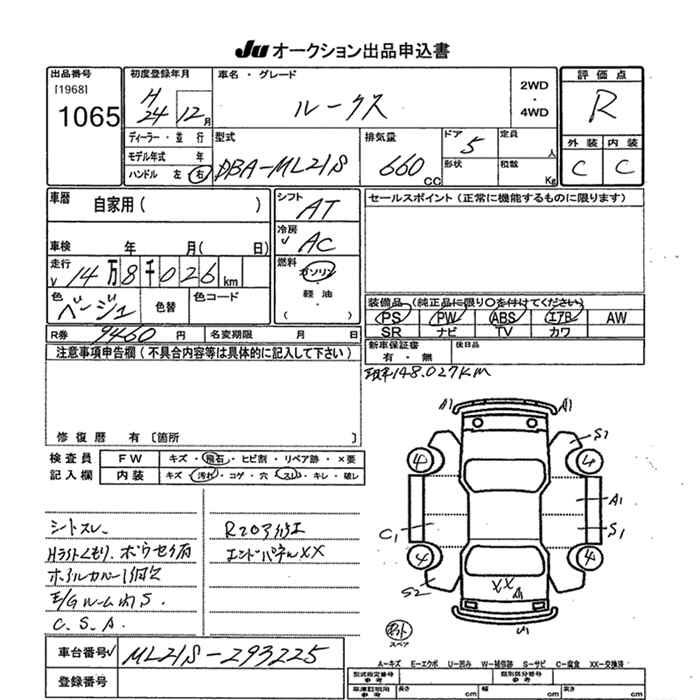 Ju オークション出品申込書
出品番号
[1968]
1065
初度登録年月
H 24 12月
ディーラー・並行
モデル年式 年
ハンドル 左 右
車名・グレード
ルークス
2WD
・
4WD
評価点
R
外装 内装
C C
型式
DBA-ML21S
排気量
660 CC
ドア
5
形状
定員
人
積数
Kg
車歴
自家用( )
シフト
AT
セールスポイント(正常に機能するものに限ります)
冷房
AC
車検 年 月( 日)
走行
14万8千026km
燃料
ガソリン
・
軽油
( )
色
ベージュ
色替
色コード
装備品(純正品に限り○を付けてください)
PS PW ABS エアB AW
SR ナビ TV カワ
R券 9460 円
名変期限 月 日
新車保証書
有・無
後日品
現車148.027KM
注意事項申告欄(不具合内容等は具体的に記入して下さい)
修復歴 有〔箇所 〕
検査員
記入欄
FW キズ・飛石・ヒビ割・リペア跡・×要
内装 キズ・汚れ・コゲ・穴・スレ・キレ・破レ
A1 A1
S2
4 4
A1
C1 S1
4 4
S2
XX A1
シートスレ
Hライトくもり.
ホイルカバー1個欠
E/Gルーム内S.
C.S.A.
エンドパネルXX
スペア
車台番号 ML21S-293225
登録番号
A−キズ E−エクボ U−凹み W−補修跡 S−サビ C−腐食 XX−交換済
型式指定番号
参考
類別区分番号
参考
車庫証明用
参考
長さ cm 幅 cm 高さ cm